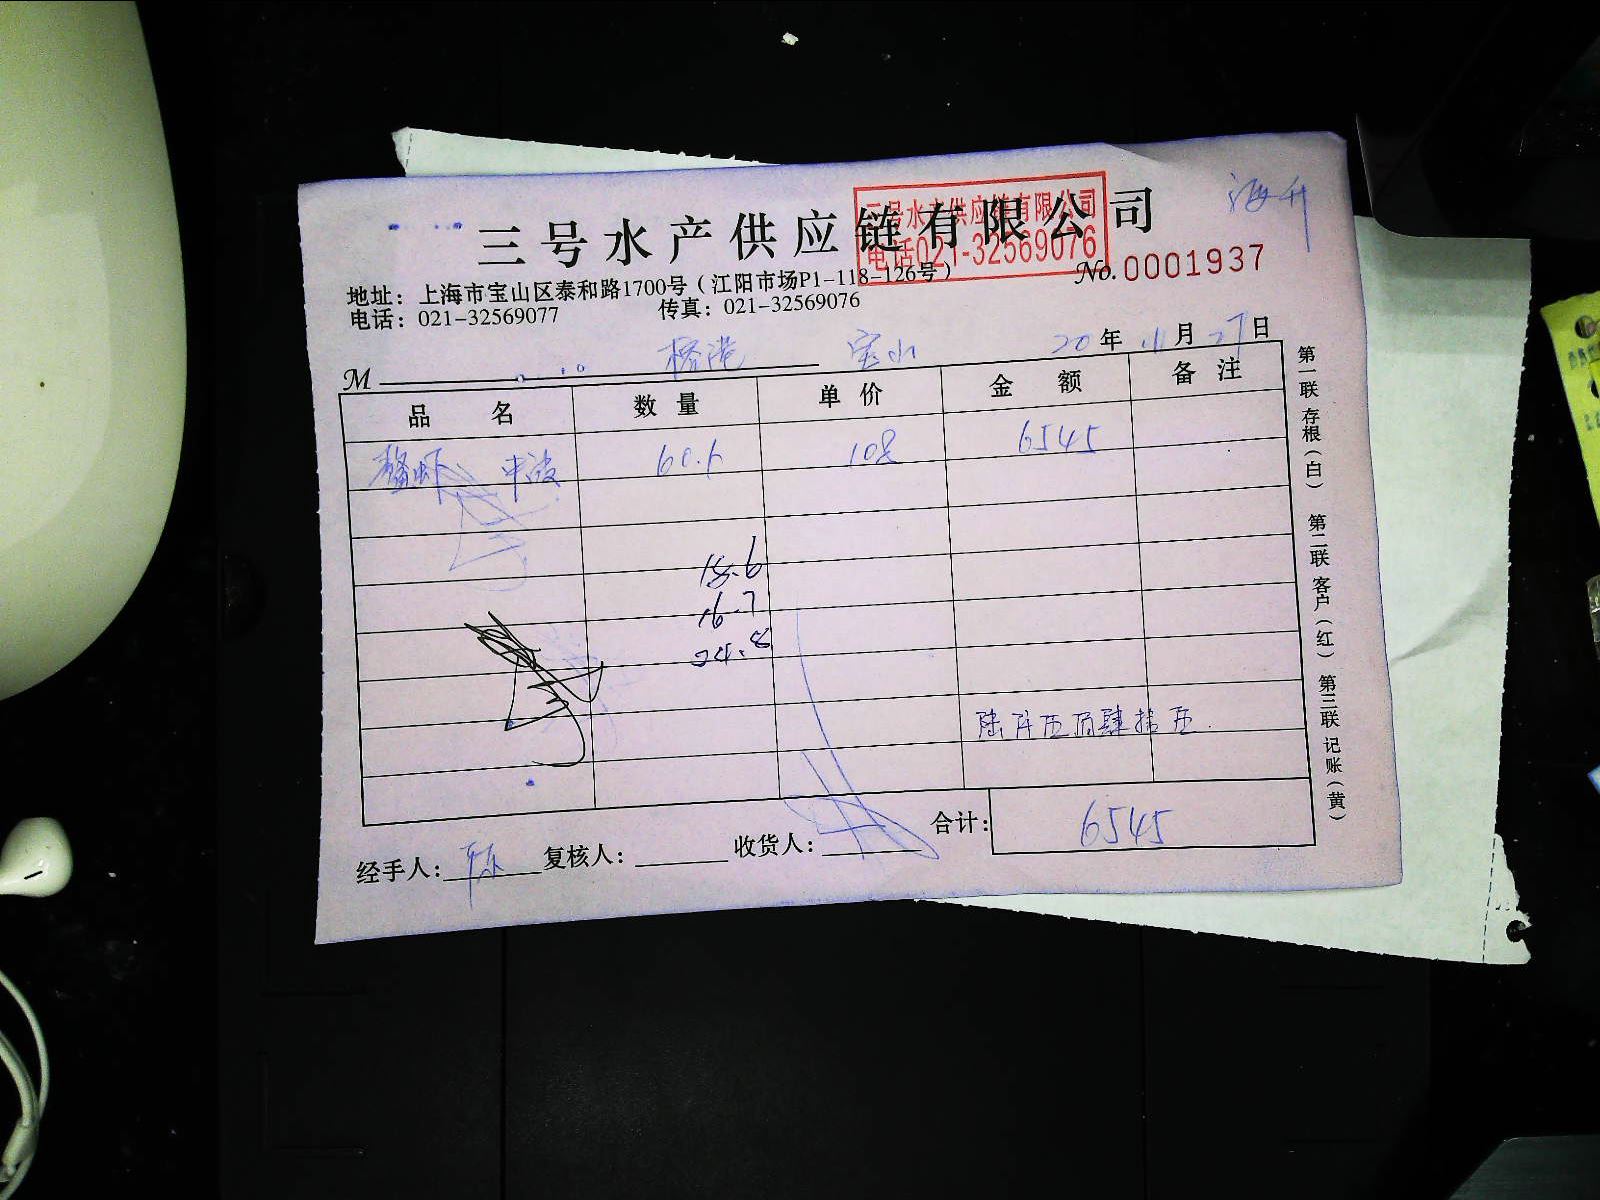 海升
三号水产供应链有限公司
三号水产供应链有限公司
电话021-32569076
No.0001937
地址：上海市宝山区泰和路1700号（江阳市场P1-118-126号）
电话：021-32569077 传真：021-32569076
宝山 20年11月27日
M
品 名 数 量 单 价 金 额 备 注
螯虾 中波 60.1 108 6545
18.6
16.7
24.8
陆仟五佰肆拾五
合计：6545
经手人： 复核人： 收货人：
第一联 存根（白） 第二联 客户（红） 第三联 记账（黄）